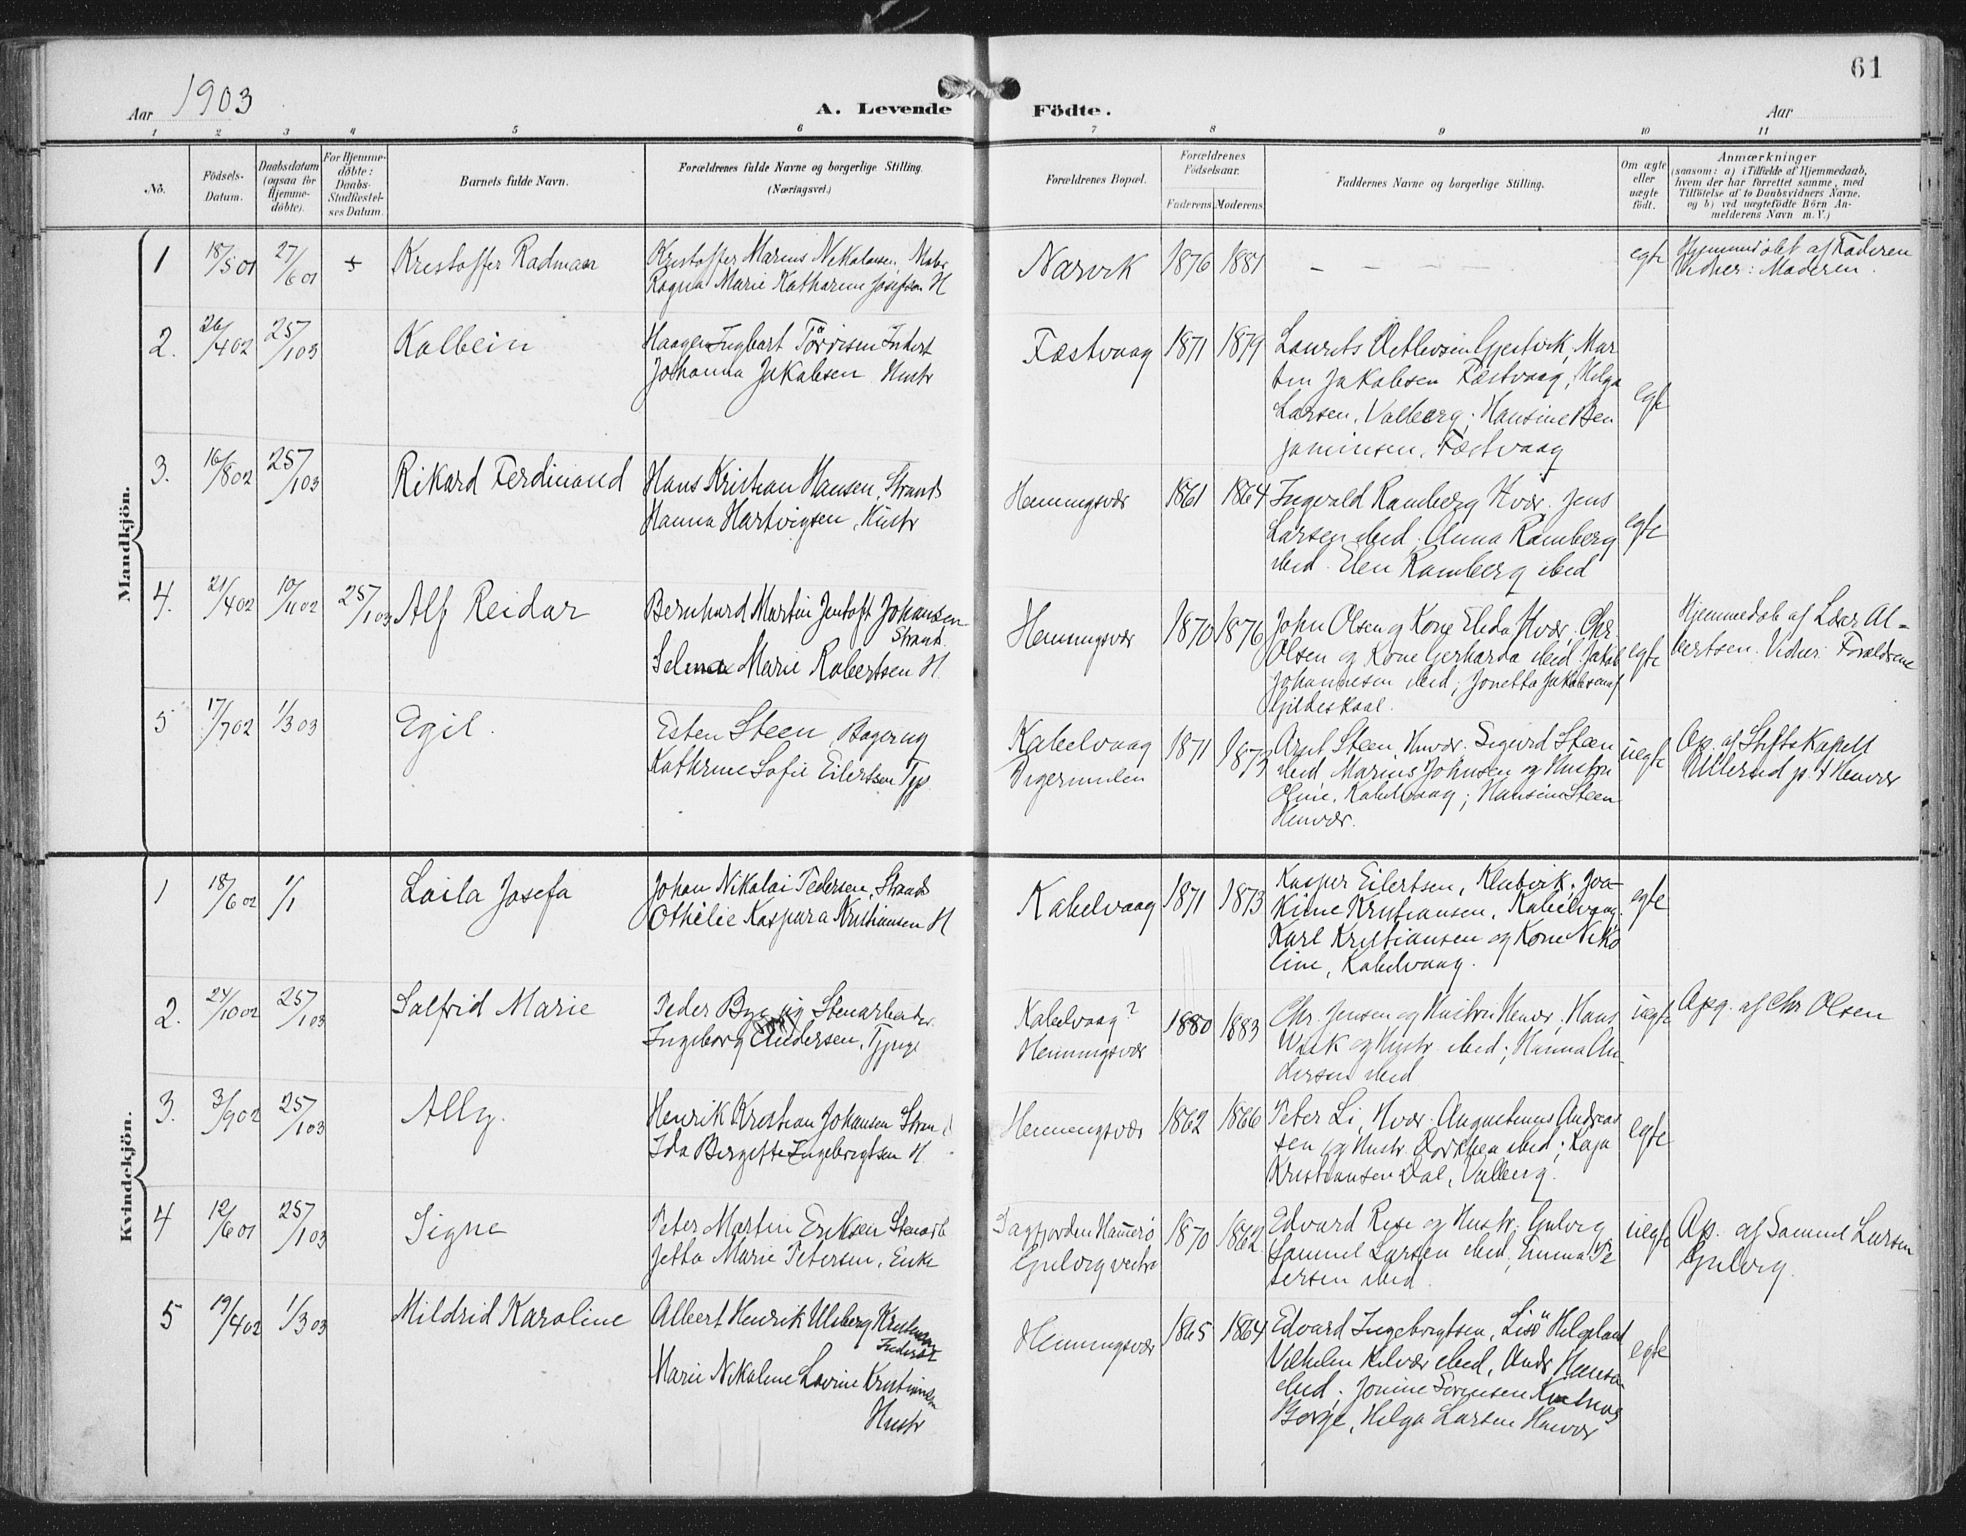 61
Aar 1903
A. Levende Födte.
Aar
1 2 3 4 5 6 7 8 9 10 11
No.
Födsels-Datum.
Daabsdatum (ogsaa for Hjemme-döbte).
For Hjemme-döbte: Daabs-Stadfæstel-ses Datum.
Barnets fulde Navn.
Forældrenes fulde Navne og borgerlige Stilling. (Næringsvei.)
Forældrenes Bopæl.
Forældrenes Födselsaar.
Faderens. Moderens.
Faddernes Navne og borgerlige Stilling.
Om ægte eller uægte födt.
Anmærkninger
(saasom: a) i Tilfælde af Hjemmedaab, hvem der har forrettet samme, med Tilföielse af to Daabsvidners Navne, og b) ved uægtefödte Börn An-melderens Navn m. V.)
Mandkjön.
1 18/5 01 27/6 01 + Kristoffer Radman
Kristoffer Marius Nikolaisen
Ragna Marie Katharine Josefsen H
Narvik 1876 1881 – – – – –
egte
Hjemmedöbt af Faderen
Vidner: Moderen.
2. 26/4 02 25/1 03 Kolbein
Haagen Ingbart Törrisen Inderst
Johanna Jakobsen Hustr
Fæstvaag 1871 1879
Laurits Detlevsen Gjestvik, Mar
tin Jakobsen Fæstvaag, Helga
Larsen, Valberg; Hansine Ben
jaminsen, Fæstvaag
egte
3. 16/8 02 25/1 03 Rikard Ferdinand
Hans Kristian Hansen, Strands
Hanna Hartvigsen, Hustr
Henningsvær 1861 1864
Ingvald Ramberg Hvær. Jens
Larsen ibid; Anna Ramberg
ibid. Elen Ramberg ibid
egte
4. 21/4 02 10/11 02 25/1 03 Alf Reidar
Bernhard Martin Jentoft Johansen
Strand.
Selma Marie Robertsen H.
Henningsvær 1870 1876
John Olsen og Kone Elida Hvær, Chr.
Olsen og Kone Gerharda ibid. Jakob
Johannesen ibid; Jonetta Jakobsen af
Gildeskaal.
egte
Hjemmedöb af Lærer Al-
bertsen. Vidner: Forældrene
5 17/7 02 1/3 03 Egil.
Esten Steen, Bager ug
Kathrine Sofie Eilertsen Tjp.
Kabelvaag
Digermulen
1871 1873
Arnt Steen, Henvær. Sigurd Steen
ibid, Marius Johnsen og Hustru
Oline, Kabelvaag; Hansine Steen
Henvær.
uegte
Op. af Stiftskapell
Ullerud p. t Henvær
Kvindekjön.
1 18/6 02 1/1 Laila Josefa
Johan Nikolai Pedersen, Strands
Othelie Kaspara Kristiansen H
Kabelvaag 1871 1873
Kasper Eilertsen, Klubvik. Joa-
kime Kristiansen, Kabelvaag.
Karl Kristiansen og Kone Niko
line, Kabelvaag.
egte
2. 24/10 02 25/1 03 Salfrid Marie
Peder Bye ug Stenarbeider
Ingeborg Andersen, Tjpige
Kabelvaag?
Henningsvær
1880 1883
Chr. Jensen og Hustru Henvær, Hans
Wiik og Hustr. ibid; Hanna An-
dersen ibid
uegte
Opg. af Chr Olsen
3. 3/9 02 25/1 03 Ally.
Henrik Kristian Johansen Strand
Ida Bergette Ingebrigtsen H.
Henningsvær 1862 1866
Peter Li, Hvær. Augustinus Andreas
sen og Hustr Dorthea ibid; Kaja
Kristiansen Dal, Valberg.
egte
4 12/6 01 25/1 03 Signe
Peter Martin Eriksen Stenarb
Jetta Marie Petersen, Enke
Sagfjorden Hamerö
Gulvig vestre
1870 1862
Edvard Rise og Hustr; Gulvig
Samuel Larsen ibid, Emma Pe
tersen ibid.
uegte
Op. af Samuel Larsen
Gulvig.
5 19/4 02 1/3 03 Mildrid Karoline
Albert Henrik Ulsberg Kristiansen
Inderst
Marie Nikoline Lovine Kristiansen
Hustr
Henningsvær 1865 1864
Edvard Ingebrigtsen, Lisö Helgeland
Vilhelm Kelvær ibid, Andr Hansen
ibid; Jonine Sörensen
Borge, Helga Larsen Henvær
egte